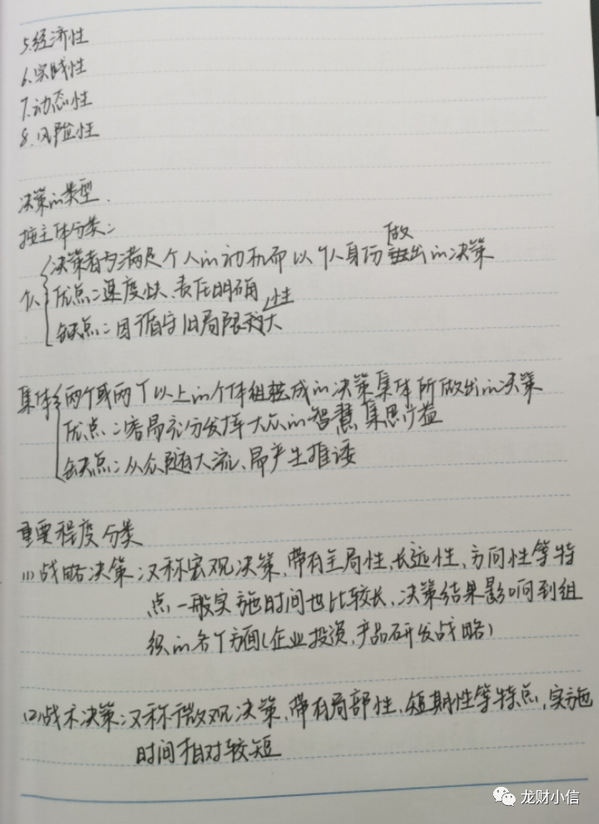 5.经济性
6.实践性
7.动态性
8.风险性
决策的类型.
按主体分类:
决策者为满足个人的动机而以个人身份做出的决策
个人 优点:速度快、责任明确
缺点:因循守旧局限性大
集体 两个或两个以上的个体组成的决策集体所做出的决策
优点:容易充分发挥大众的智慧 集思广益
缺点:从众随大流、易产生推诿
重要程度分类
(1)战略决策:又称宏观决策,带有全局性,长远性,方向性等特
点一般实施时间也比较长,决策结果影响到组
织的各个方面(企业投资,产品研发战略)
(2)战术决策:又称微观决策,带有局部性,短期性等特点,实施
时间相对较短
龙财小信